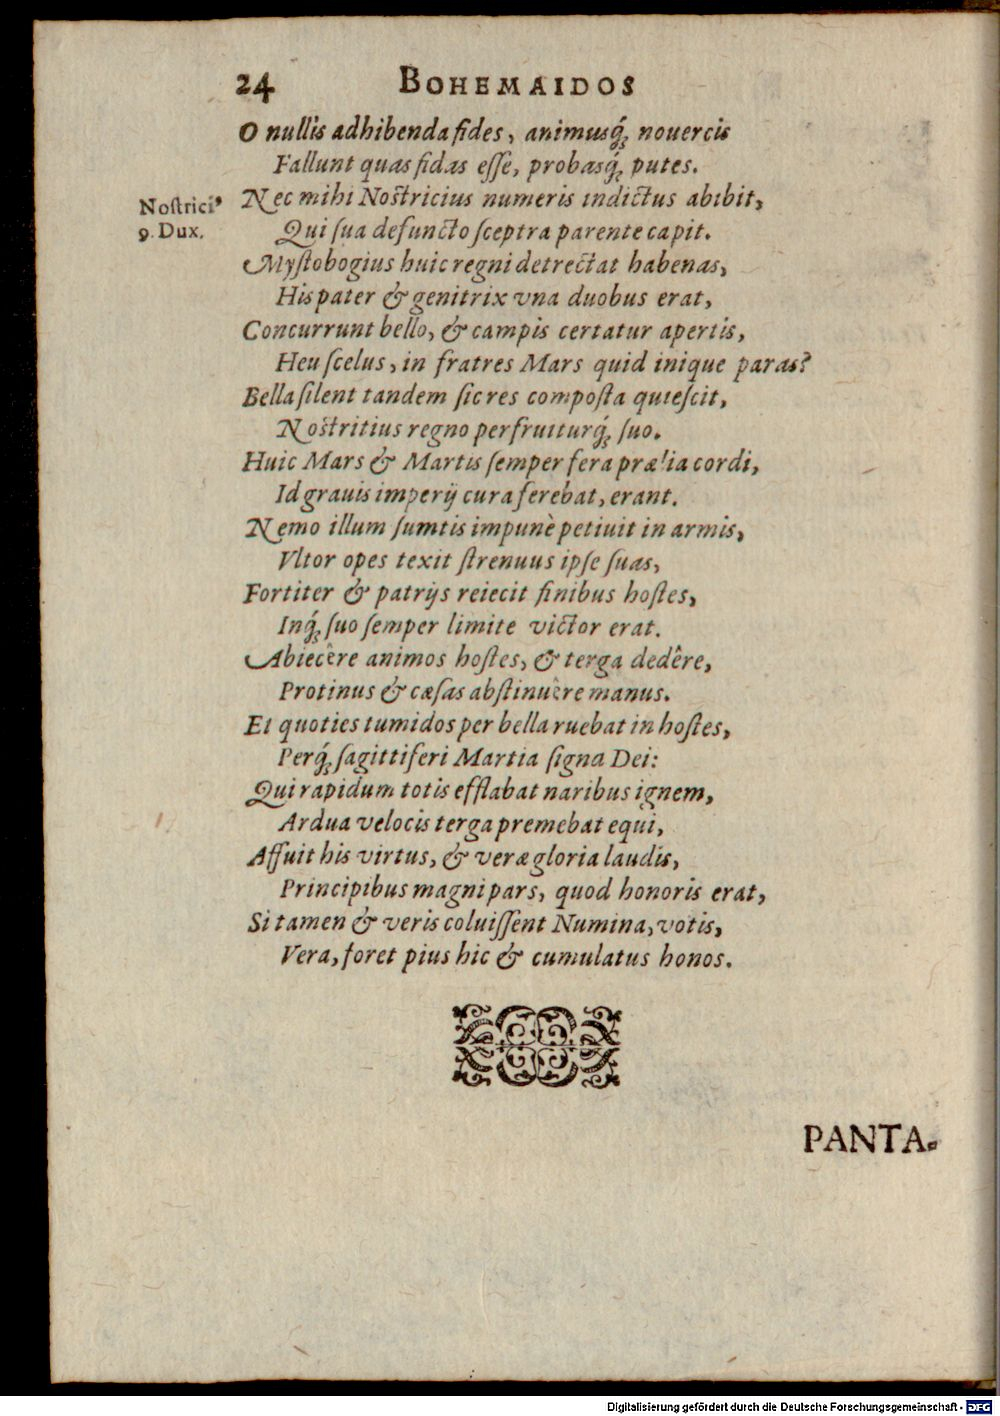 24 BOHEMAIDOS
O nullis adhibenda fides, animusq́; nouercis
Fallunt quas fidas esse, probasq́; putes.
Nostrici⁹
9. Dux.
Nec mihi Nostricius numeris indictus abibit,
Qui sua defuncto sceptra parente capit.
Mystobogius huic regni detrectat habenas,
His pater & genitrix vna duobus erat,
Concurrunt bello, & campis certatur apertis,
Heu scelus, in fratres Mars quid inique paras?
Bella silent tandem sic res composta quiescit,
Nostritius regno perfruiturq́; suo.
Huic Mars & Martis semper fera prælia cordi,
Id grauis imperij cura ferebat, erant.
Nemo illum sumtis impunè petiuit in armis,
Vltor opes texit strenuus ipse suas,
Fortiter & patrijs reiecit finibus hostes,
Inq́; suo semper limite victor erat.
Abiecêre animos hostes, & terga dedêre,
Protinus & cæsas abstinuêre manus.
Et quoties tumidos per bella ruebat in hostes,
Perq́; sagittiferi Martia signa Dei:
Qui rapidum totis efflabat naribus ignem,
Ardua velocis terga premebat equi,
Affuit his virtus, & veræ gloria laudis,
Principibus magni pars, quod honoris erat,
Si tamen & veris coluissent Numina, votis,
Vera, foret pius hic & cumulatus honos.
PANTA-
Digitalisierung gefördert durch die Deutsche Forschungsgemeinschaft - DFG